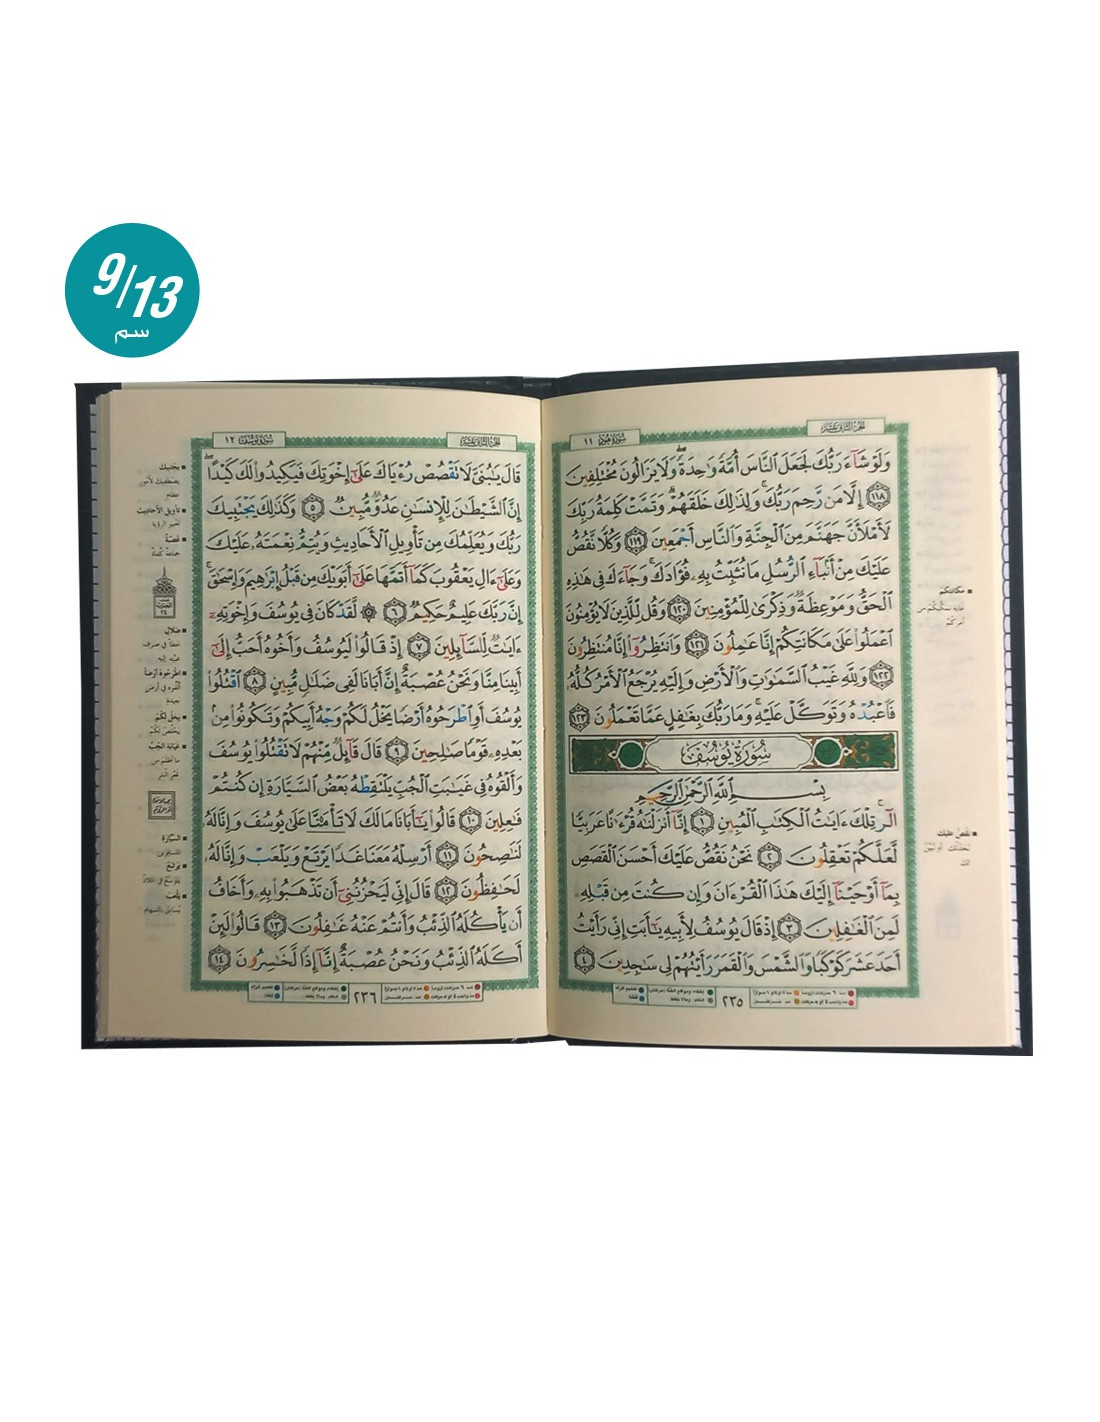 9/13
سم
الجزء الثاني عشر
سورة هود ١١
وَلَوْ شَآءَ رَبُّكَ لَجَعَلَ ٱلنَّاسَ أُمَّةً وَٰحِدَةً وَلَا يَزَالُونَ مُخْتَلِفِينَ
١١٨ إِلَّا مَن رَّحِمَ رَبُّكَ وَلِذَٰلِكَ خَلَقَهُمْ وَتَمَّتْ كَلِمَةُ رَبِّكَ
لَأَمْلَأَنَّ جَهَنَّمَ مِنَ ٱلْجِنَّةِ وَٱلنَّاسِ أَجْمَعِينَ ١١٩ وَكُلًّا نَّقُصُّ
عَلَيْكَ مِنْ أَنۢبَآءِ ٱلرُّسُلِ مَا نُثَبِّتُ بِهِۦ فُؤَادَكَ وَجَآءَكَ فِى هَٰذِهِ
ٱلْحَقُّ وَمَوْعِظَةٌ وَذِكْرَىٰ لِلْمُؤْمِنِينَ ١٢٠ وَقُل لِّلَّذِينَ لَا يُؤْمِنُونَ
ٱعْمَلُوا۟ عَلَىٰ مَكَانَتِكُمْ إِنَّا عَٰمِلُونَ ١٢١ وَٱنتَظِرُوٓا۟ إِنَّا مُنتَظِرُونَ
١٢٢ وَلِلَّهِ غَيْبُ ٱلسَّمَٰوَٰتِ وَٱلْأَرْضِ وَإِلَيْهِ يُرْجَعُ ٱلْأَمْرُ كُلُّهُۥ
فَٱعْبُدْهُ وَتَوَكَّلْ عَلَيْهِ وَمَا رَبُّكَ بِغَٰفِلٍ عَمَّا تَعْمَلُونَ ١٢٣
سُورَةُ يُوسُفَ
بِسْمِ ٱللَّهِ ٱلرَّحْمَٰنِ ٱلرَّحِيمِ
الٓر تِلْكَ ءَايَٰتُ ٱلْكِتَٰبِ ٱلْمُبِينِ ١ إِنَّآ أَنزَلْنَٰهُ قُرْءَٰنًا عَرَبِيًّا
لَّعَلَّكُمْ تَعْقِلُونَ ٢ نَحْنُ نَقُصُّ عَلَيْكَ أَحْسَنَ ٱلْقَصَصِ
بِمَآ أَوْحَيْنَآ إِلَيْكَ هَٰذَا ٱلْقُرْءَانَ وَإِن كُنتَ مِن قَبْلِهِۦ
لَمِنَ ٱلْغَٰفِلِينَ ٣ إِذْ قَالَ يُوسُفُ لِأَبِيهِ يَٰٓأَبَتِ إِنِّى رَأَيْتُ
أَحَدَ عَشَرَ كَوْكَبًا وَٱلشَّمْسَ وَٱلْقَمَرَ رَأَيْتُهُمْ لِى سَٰجِدِينَ ٤
مكانتكم
نقص عليك
٢٣٥
الجزء الثاني عشر
سورة يوسف ١٢
قَالَ يَٰبُنَىَّ لَا تَقْصُصْ رُءْيَاكَ عَلَىٰٓ إِخْوَتِكَ فَيَكِيدُوا۟ لَكَ كَيْدًا
إِنَّ ٱلشَّيْطَٰنَ لِلْإِنسَٰنِ عَدُوٌّ مُّبِينٌ ٥ وَكَذَٰلِكَ يَجْتَبِيكَ
رَبُّكَ وَيُعَلِّمُكَ مِن تَأْوِيلِ ٱلْأَحَادِيثِ وَيُتِمُّ نِعْمَتَهُۥ عَلَيْكَ
وَعَلَىٰٓ ءَالِ يَعْقُوبَ كَمَآ أَتَمَّهَا عَلَىٰٓ أَبَوَيْكَ مِن قَبْلُ إِبْرَٰهِيمَ وَإِسْحَٰقَ
إِنَّ رَبَّكَ عَلِيمٌ حَكِيمٌ ٦ ۞ لَّقَدْ كَانَ فِى يُوسُفَ وَإِخْوَتِهِۦٓ
ءَايَٰتٌ لِّلسَّآئِلِينَ ٧ إِذْ قَالُوا۟ لَيُوسُفُ وَأَخُوهُ أَحَبُّ إِلَىٰٓ
أَبِينَا مِنَّا وَنَحْنُ عُصْبَةٌ إِنَّ أَبَانَا لَفِى ضَلَٰلٍ مُّبِينٍ ٨ ٱقْتُلُوا۟
يُوسُفَ أَوِ ٱطْرَحُوهُ أَرْضًا يَخْلُ لَكُمْ وَجْهُ أَبِيكُمْ وَتَكُونُوا۟ مِنۢ
بَعْدِهِۦ قَوْمًا صَٰلِحِينَ ٩ قَالَ قَآئِلٌ مِّنْهُمْ لَا تَقْتُلُوا۟ يُوسُفَ
وَأَلْقُوهُ فِى غَيَٰبَتِ ٱلْجُبِّ يَلْتَقِطْهُ بَعْضُ ٱلسَّيَّارَةِ إِن كُنتُمْ
فَٰعِلِينَ ١٠ قَالُوا۟ يَٰٓأَبَانَا مَا لَكَ لَا تَأْمَ۫نَّا عَلَىٰ يُوسُفَ وَإِنَّا لَهُۥ
لَنَٰصِحُونَ ١١ أَرْسِلْهُ مَعَنَا غَدًا يَرْتَعْ وَيَلْعَبْ وَإِنَّا لَهُۥ
لَحَٰفِظُونَ ١٢ قَالَ إِنِّى لَيَحْزُنُنِىٓ أَن تَذْهَبُوا۟ بِهِۦ وَأَخَافُ
أَن يَأْكُلَهُ ٱلذِّئْبُ وَأَنتُمْ عَنْهُ غَٰفِلُونَ ١٣ قَالُوا۟ لَئِنْ
أَكَلَهُ ٱلذِّئْبُ وَنَحْنُ عُصْبَةٌ إِنَّآ إِذًا لَّخَٰسِرُونَ ١٤
يجتبيك
تأويل الأحاديث
عصبة
ضلال
اطرحوه أرضا
يخل لكم
غيابة الجب
السيارة
يرتع
يلعب
٢٣٦